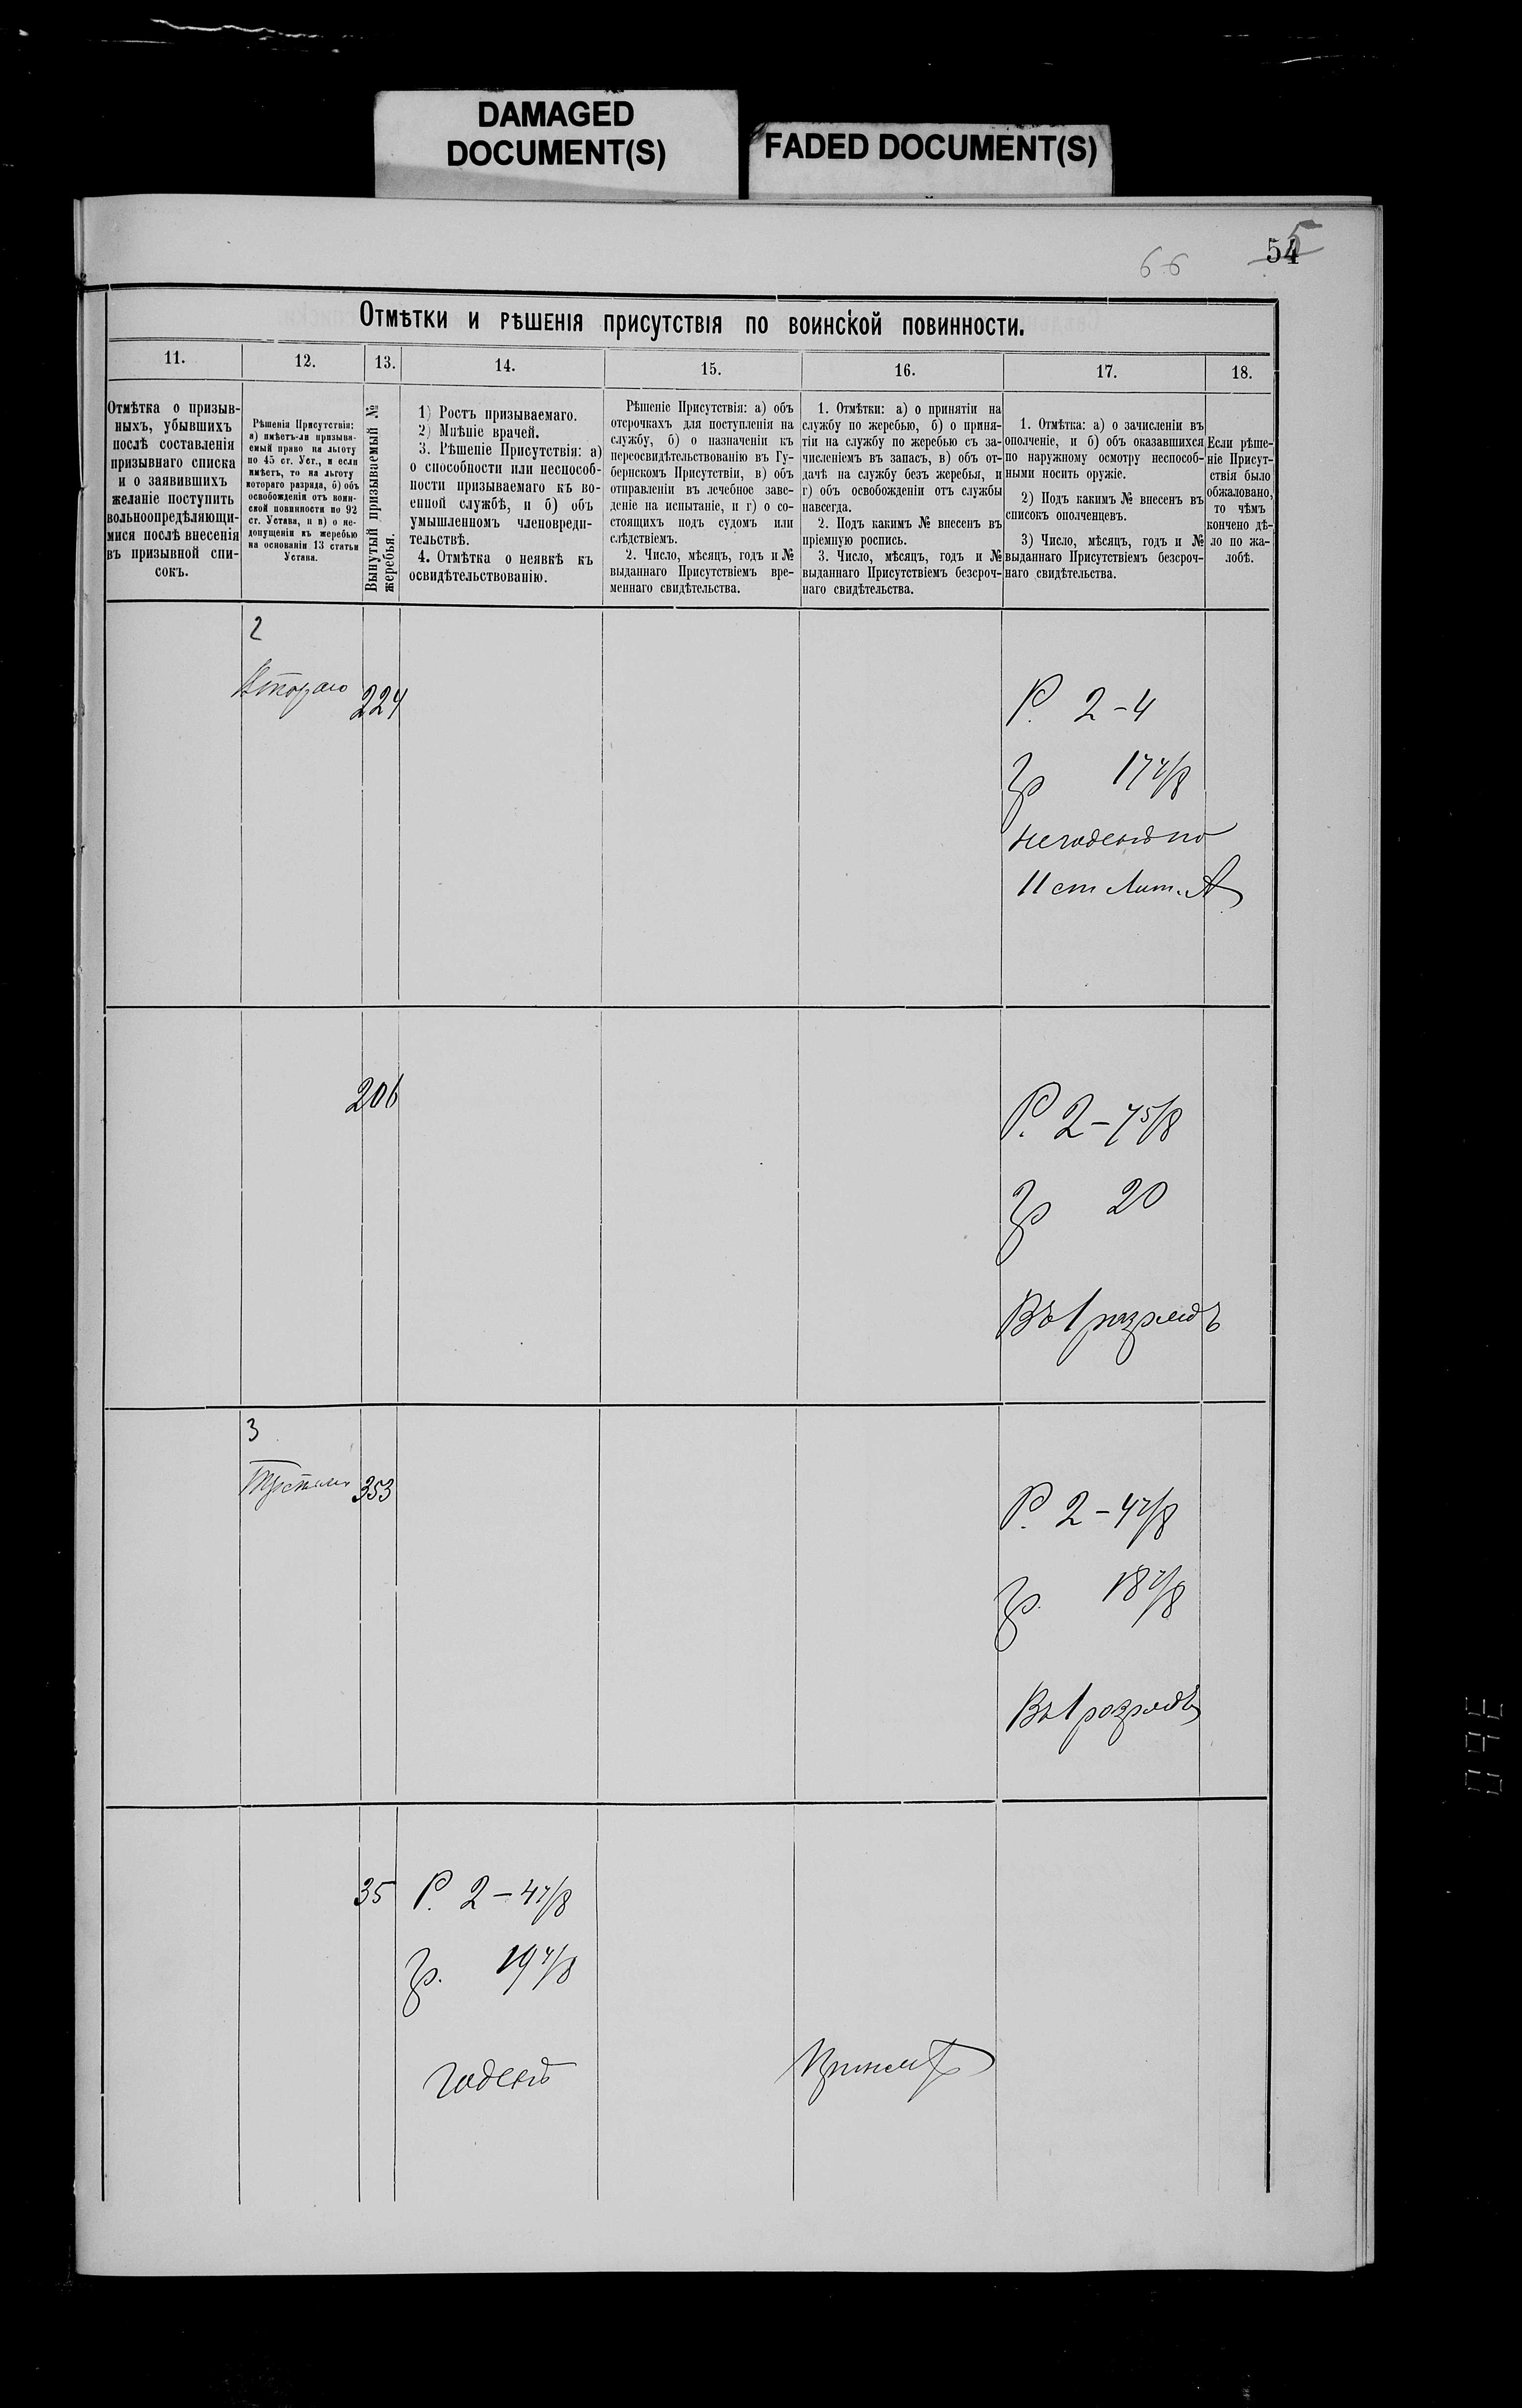 DAMAGED
DOCUMENT(S)
FADED DOCUMENT(S)
66
54
5
Отмѣтки и рѣшенія присутствія по воинской повинности.
11.
12.
13.
14.
15.
16.
17.
18.
Отмѣтка о призыв-
ныхъ, убывшихъ
послѣ составленія
призывнаго списка
и о заявившихъ
желаніе поступить
вольноопредѣляющи-
мися послѣ внесенія
въ призывной спи-
сокъ.
Рѣшенія Присутствія:
а) имѣетъ-ли призыва-
емый право на льготу
по 45 ст. Уст., и если
имѣетъ, то на льготу
котораго разряда, б) объ
освобожденіи отъ воин-
ской повинности по 92
ст. Устава, и в) о не-
допущеніи къ жеребью
на основаніи 13 статьи
Устава.
Вынутый призываемый №
жеребья.
1) Ростъ призываемаго.
2) Мнѣніе врачей.
3. Рѣшеніе Присутствія: а)
о способности или неспособ-
ности призываемаго къ во-
енной службѣ, и б) объ
умышленномъ членовреди-
тельствѣ.
4. Отмѣтка о неявкѣ къ
освидѣтельствованію.
Рѣшеніе Присутствія: а) объ
отсрочкахъ для поступленія на
службу, б) о назначеніи къ
переосвидѣтельствованію въ Гу-
бернскомъ Присутствіи, в) объ
отправленіи въ лечебное заве-
деніе на испытаніе, и г) о со-
стоящихъ подъ судомъ или
слѣдствіемъ.
2. Число, мѣсяцъ, годъ и №
выданнаго Присутствіемъ вре-
меннаго свидѣтельства.
1. Отмѣтки: а) о принятіи на
службу по жеребью, б) о приня-
тіи на службу по жеребью съ за-
численіемъ въ запасъ, в) объ от-
дачѣ на службу безъ жеребья, и
г) объ освобожденіи отъ службы
навсегда.
2. Подъ какимъ № внесенъ въ
пріемную роспись.
3. Число, мѣсяцъ, годъ и №
выданнаго Присутствіемъ безсроч-
наго свидѣтельства.
1. Отмѣтка: а) о зачисленіи въ
ополченіе, и б) объ оказавшихся
по наружному осмотру неспособ-
ными носить оружіе.
2) Подъ какимъ № внесенъ въ
списокъ ополченцевъ.
3) Число, мѣсяцъ, годъ и №
выданнаго Присутствіемъ безсроч-
наго свидѣтельства.
Если рѣше-
ніе Присут-
ствія было
обжаловано,
то чѣмъ
кончено дѣ-
ло по жа-
лобѣ.
2
Втораго
224
Р. 2-4
Гр 17 4/8
негоденъ по
11 ст Лит. А
206
Р. 2-7 5/8
Гр 20
Въ 1 разрядъ
3
Третьяго
353
Р. 2-4 7/8
Гр. 18 4/8
Въ 1 разрядъ
35
Р. 2-4 7/8
Гр. 19 4/8
годенъ
Принятъ